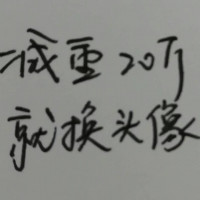 减重20斤
就换头像